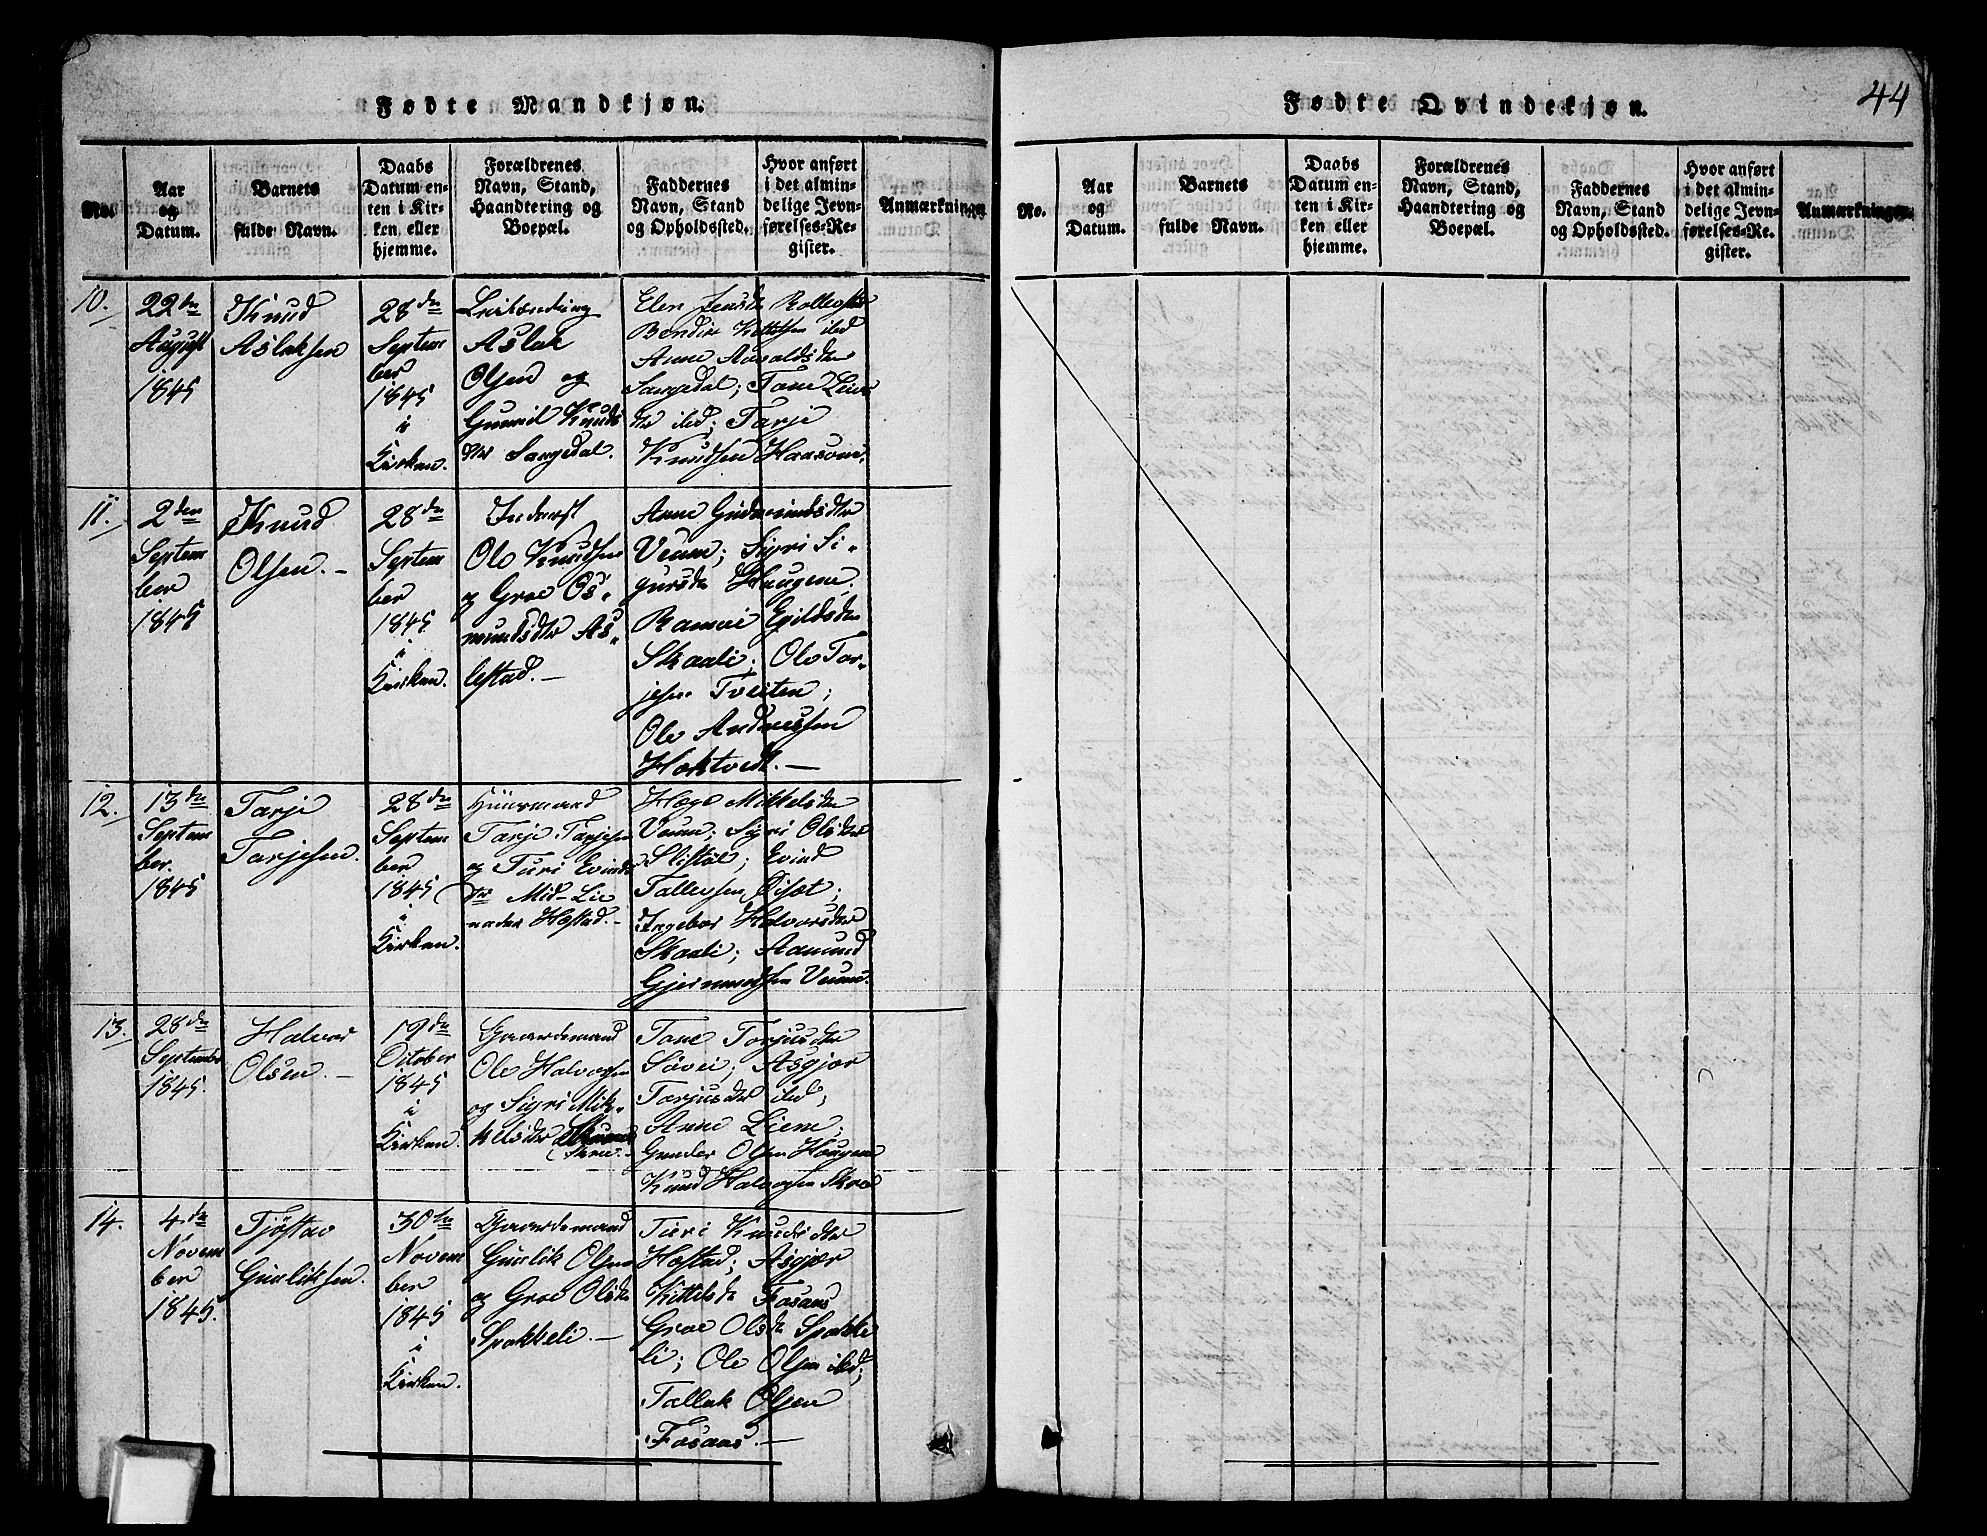 Fødte Mandkjøn.
No.
Aar
og
Datum.
Barnets
fulde Navn.
Daabs
Datum en-
ten i Kir-
ken eller
hjemme.
Forældrenes
Navn, Stand,
Haandtering og
Boepæl.
Faddernes
Navn, Stand
og Opholdssted.
Hvor anført
i det almin-
delige Jevn-
førelses-Re-
gister.
Anmærkninger
10.
22de
August
1845
Knud
Aslaksen
28de
Septem
ber
1845
i
Kirken.
Leilænding
Aslak
Olsen og
Gunnil Knuds
dtr Langedal.
Elen Jensdtr
Bendix Kittelsen ibed
Anne Aavaldsdtr
Langedal; Tone
dtr ibed; Tarje
Knudsen Haasom.
11.
2den
Septem
ber
1845
Knud
Olsen. –
28de
Septem
ber
1845
i
Kirken.
Inderst
Ole Knudsen
og Groe Os-
mundsdtr As-
lestad. –
Anne Gudmundsdtr
Veum; Sigri Si-
gursdtr Haugene;
Ramvei Egildsdtr
Skaali; Ole Tor-
jesen Tveiten;
Ole Andressen
Hoktvedt. –
12.
13de
Septem
ber.
1845
Tarje
Tarjesen.
28de
Septem
ber
1845
i
Kirken.
Huusmand
Tarje Tarjesen
og Turi Evinds
dtr Mid-Lie
under Høstad. –
Hæge Mikkelsdtr
Veum; Sigri Olsdtr
Slistøl; Evind
Tallefsen Øisæt;
Ingebor Halvorsdtr
Skaali; Aamund
Gjermundsen Veum.
13.
28de
September
1845.
Halvor
Olsen. –
19de
October
1845
i
Kirken.
Gaardemand
Ole Halvorsen
og Sigri Mik-
kelsdtr
Skree.
Tone Torjusdtr
Løvei; Asgjær
Torjusdtr ibed;
Anne Liene;
Gunder Olsen Haugene
Knud Halvorsen Skree
14.
4de
Novem
ber
1845.
Tjøstav
Gunliksen.
30te
Novem
ber
1845
i
Kirken.
Gaardemand
Gunlik Olsen
og Groe Olsdtr
Spokkeli. –
Turi Knudsdtr
Høstad; Asgjær
Kittelsdtr Fosaas
Groe Olsdtr Spokke
li; Ole Olsen ibed;
Tallak Olsen
Fosaas. –
Fødte Qvindekjøn.
44
No.
Aar
og
Datum.
Barnets
fulde Navn.
Daabs
Datum en-
ten i Kir-
ken eller
hjemme.
Forældrenes
Navn, Stand,
Haandtering og
Boepæl.
Faddernes
Navn, Stand
og Opholdssted.
Hvor anført
i det almin-
delige Jevn-
førelses-Re-
gister.
Anmærkninger.